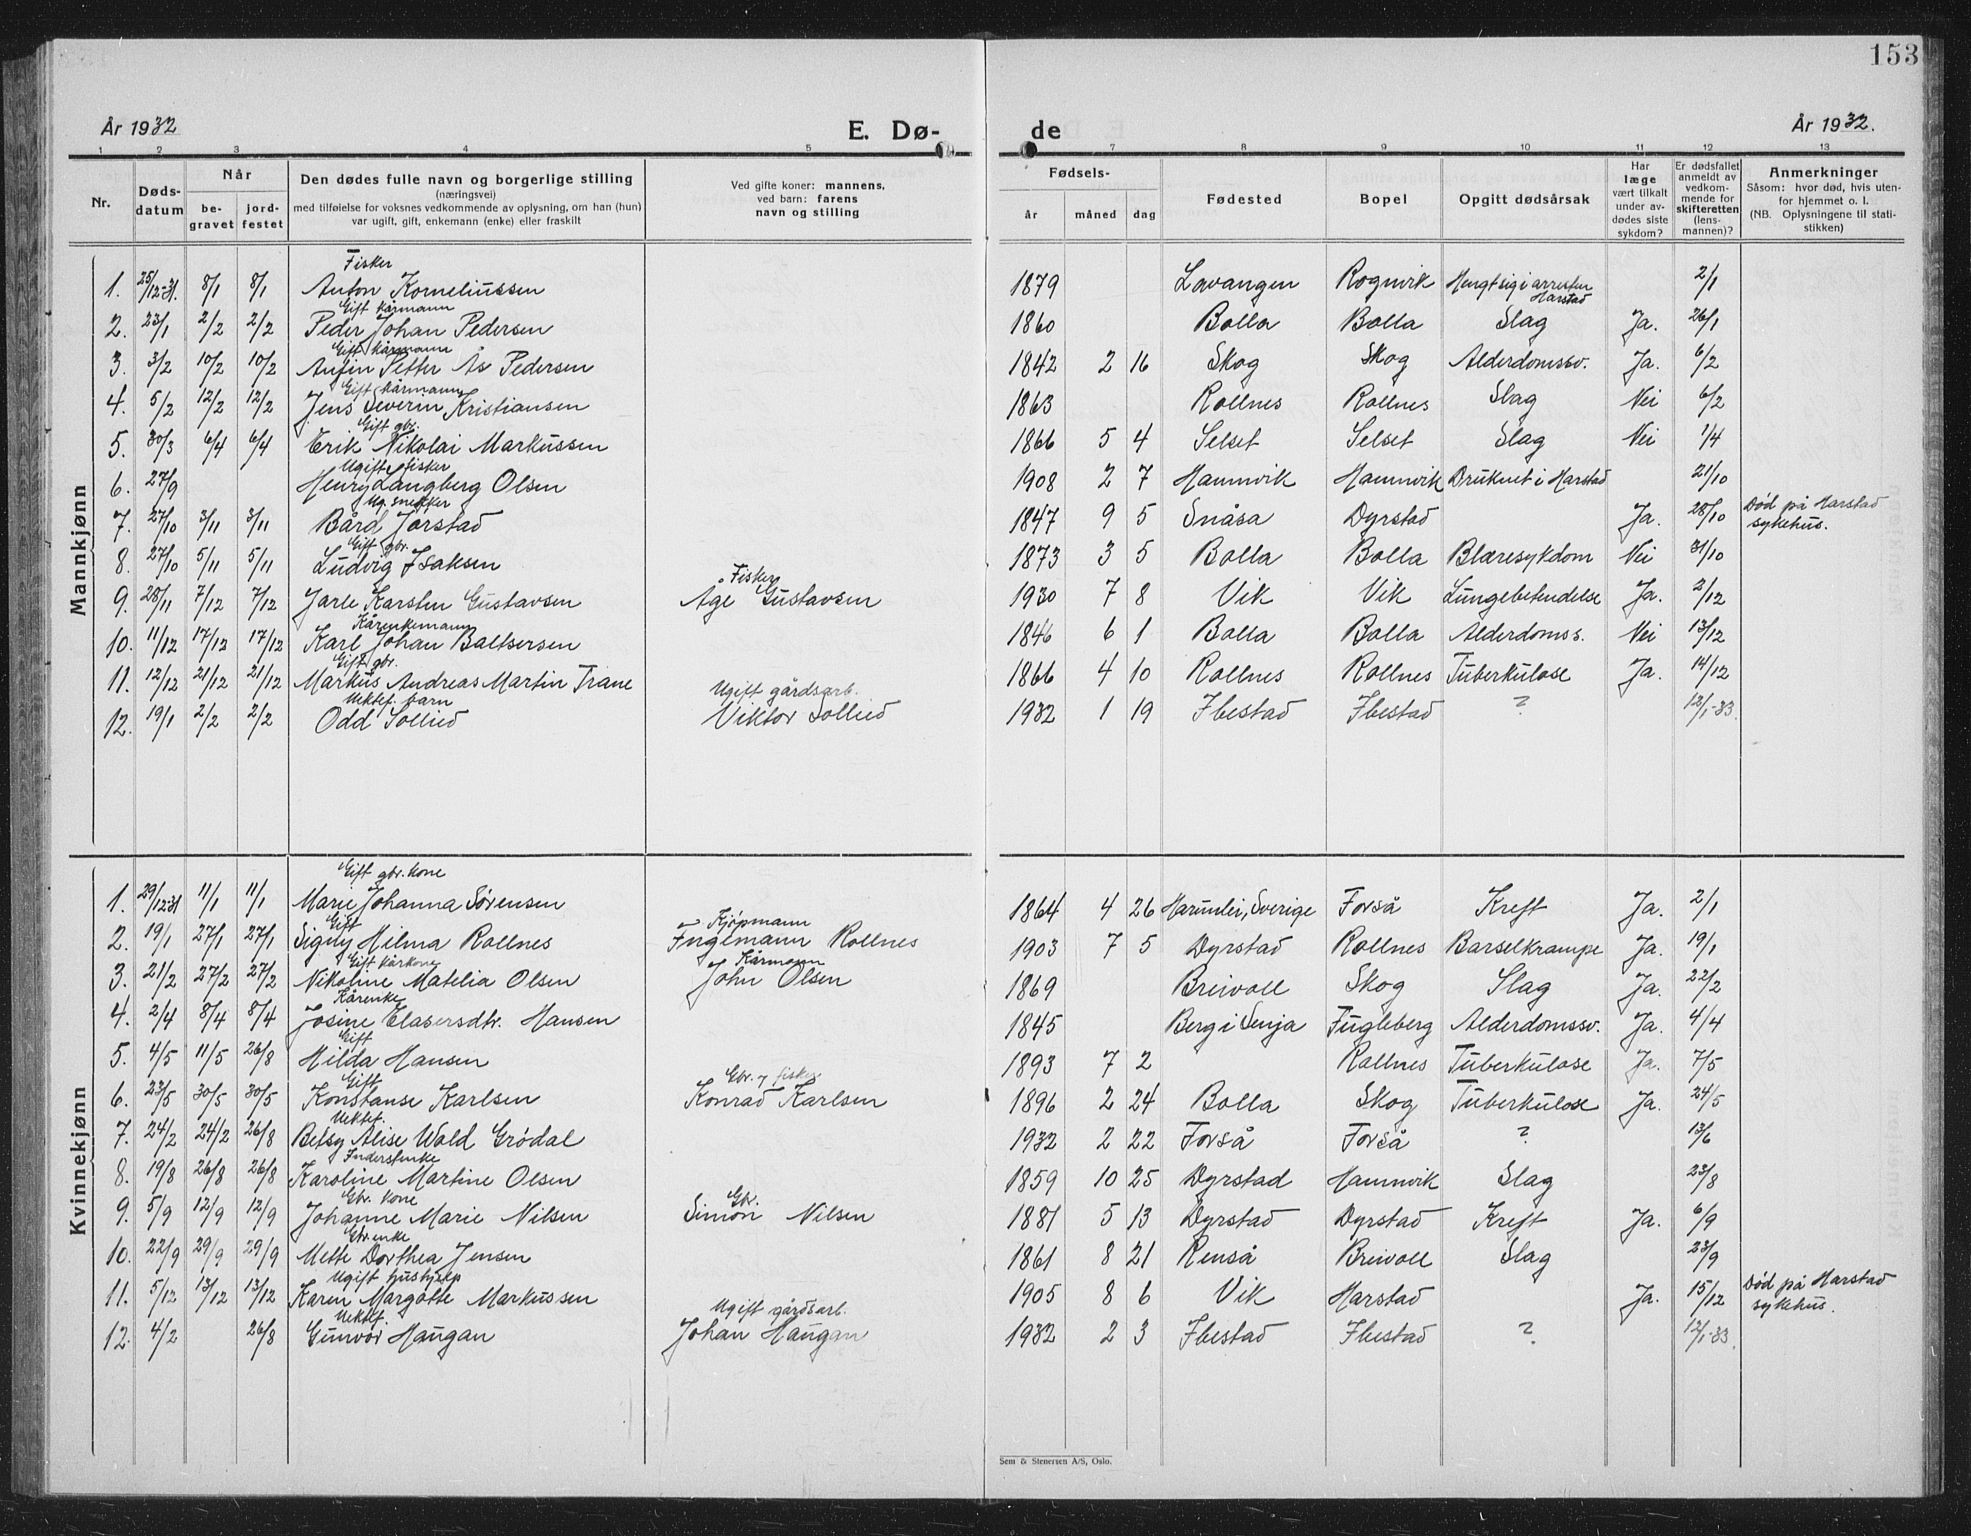 153
År 1932
E. Dø-
de
År 1932.
1 2 3 4 5 7 8 9 10 11 12 13
Nr.
Døds-
datum
Når
be-
gravet
jord-
festet
Den dødes fulle navn og borgerlige stilling
(næringsvei)
med tilføielse for voksnes vedkommende av oplysning, om han (hun)
var ugift, gift, enkemann (enke) eller fraskilt
Ved gifte koner: mannens,
ved barn: farens
navn og stilling
Fødsels-
år måned dag
Fødested
Bopel
Opgitt dødsårsak
Har
læge
vært tilkalt
under av-
dødes siste
sykdom?
Er dødsfallet
anmeldt av
vedkom-
mende for
skifteretten
(lens-
mannen)?
Anmerkninger
Såsom: hvor død, hvis uten-
for hjemmet o. l.
(NB. Oplysningene til stati-
stikken)
Mannkjønn
Fisker
1. 25/12-31. 8/1 8/1 Anton Korneliussen 1879 Lavangen Rognvik Hengt sig i arresten Harstad 2/1
Gift kårmann
2. 23/1 2/2 2/2 Peder Johan Pedersen 1860 Bolla Bolla Slag Ja. 26/1
Gift kårmann
3. 3/2 10/2 10/2 Anfin Petter As Pedersen 1842 2 16 Skog Skog Alderdomssv. Ja. 6/2
Gift kårmann
4. 5/2 12/2 12/2 Jens Severin Kristiansen 1863 Rollnes Rollnes Slag Nei 6/2
Gift gbr.
5. 30/3 6/4 6/4 Erik Nikolai Markussen 1866 5 4 Selset Selset Slag Nei 1/4
Ugift fisker
6. 27/9 Henry Langberg Olsen 1908 2 7 Hamnvik Hamnvik Druknet i Harstad 21/10
Ug. snekker
7. 27/10 3/11 3/11 Bård Jørstad 1847 9 5 Snåsa Dyrstad Ja. 28/10 Død på Harstad
sykehus.
Gift gbr.
8. 27/10 5/11 5/11 Ludvig Isaksen 1873 3 5 Bolla Bolla Blæresykdom Nei 31/10
Fisker
9. 28/11 7/12 7/12 Jarle Karsten Gustavsen Åge Gustavsen 1930 7 8 Vik Vik Lungebetendelse Ja. 2/12
Kårenkemann
10. 11/12 17/12 17/12 Karl Johan Baltsersen 1846 6 1 Bolla Bolla Alderdomss. Nei 13/12
Gift gbr.
11. 12/12 21/12 21/12 Markus Andreas Martin Trane 1866 4 10 Rollnes Rollnes Tuberkulose Ja. 14/12
Uektef. barn Ugift gårdsarb.
12. 19/1 2/2 2/2 Odd Sollied Viktor Sollied 1932 1 19 Ibestad Ibestad ? 12/1-33.
Kvinnekjønn
Gift gbr. kone
1. 29/12-31 11/1 11/1 Marie Johanna Sørensen 1864 4 26 Sverige Forså Kreft Ja. 2/1
Gift Kjøpmann
2. 19/1 27/1 27/1 Signy Hilma Rollnes Ingemann Rollnes 1903 7 5 Dyrstad Rollnes Barselkrampe Ja. 19/1
Gift kårkone Kårmann
3. 21/2 27/2 27/2 Nikoline Matelia Olsen John Olsen 1869 Breivoll Skog Slag Ja. 22/2
Kårenke
4. 2/4 8/4 8/4 Josine Elasersdtr. Hansen 1845 Berg i Senja Fugleberg Alderdomssv. Ja. 4/4
Gift
5. 4/5 11/5 26/8 Hilda Hansen 1893 7 2 Rollnes Tuberkulose Ja. 7/5
Gift Gbr. og fisker
6. 23/5 30/5 30/5 Konstanse Karlsen Konrad Karlsen 1896 2 24 Bolla Skog Tuberkulose Ja. 24/5
Uektef.
7. 24/2 24/2 26/8 Betsy Alise Wold Grødal 1932 2 22 Forså Forså ? 13/6
Inderstenke
8. 19/8 26/8 26/8 Karoline Martine Olsen 1859 10 25 Dyrstad Hamnvik Slag 23/8
Gbr. kone Gbr.
9. 5/9 12/9 12/9 Johanne Marie Nilsen Simon Nilsen 1881 5 13 Dyrstad Dyrstad Kreft Ja. 6/9
Gbr. enke
10. 22/9 29/9 29/9 Mette Dorthea Jensen 1861 8 21 Renså Breivoll Slag 23/9
Ugift hushjelp
11. 5/12 13/12 13/12 Karen Margotte Markussen 1905 8 6 Vik Harstad Ja. 15/12 Død på Harstad
sykehus.
Uektef. Ugift gårdsarb.
12. 4/2 26/8 Gunvor Haugan Johan Haugan 1932 2 3 Ibestad Ibestad ? 12/1-33.
Sem & Stenersen A/S, Oslo.